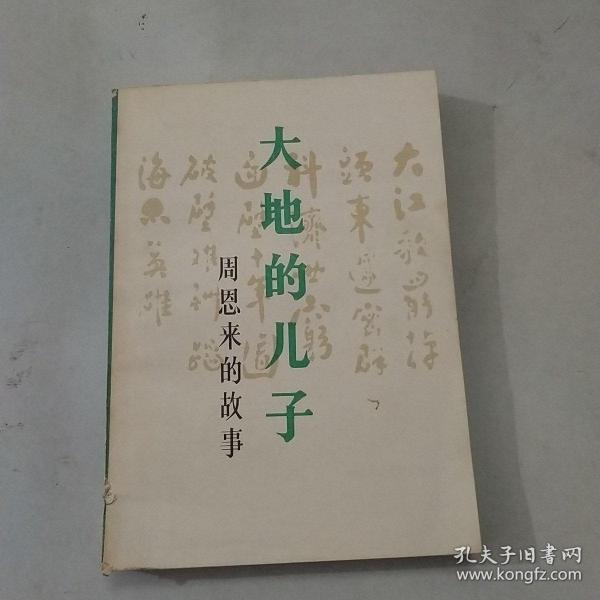 大地的儿子
周恩来的故事
大江歌罷掉
頭東邃密群
科濟世窮
面壁十年圖
破壁難酬蹈
海亦英雄
孔夫子旧书网
www.kongfz.com